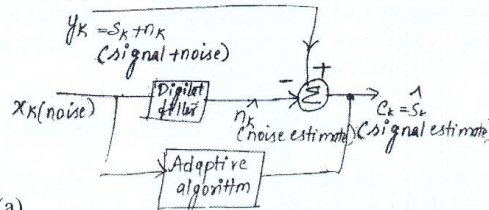 yK = sK + nK
(signal + noise)
- +
Digital
filter
Σ
xK (noise)
n̂K
(noise estimate)
eK = ŝK
(signal estimate)
Adaptive
algorithm
(a)